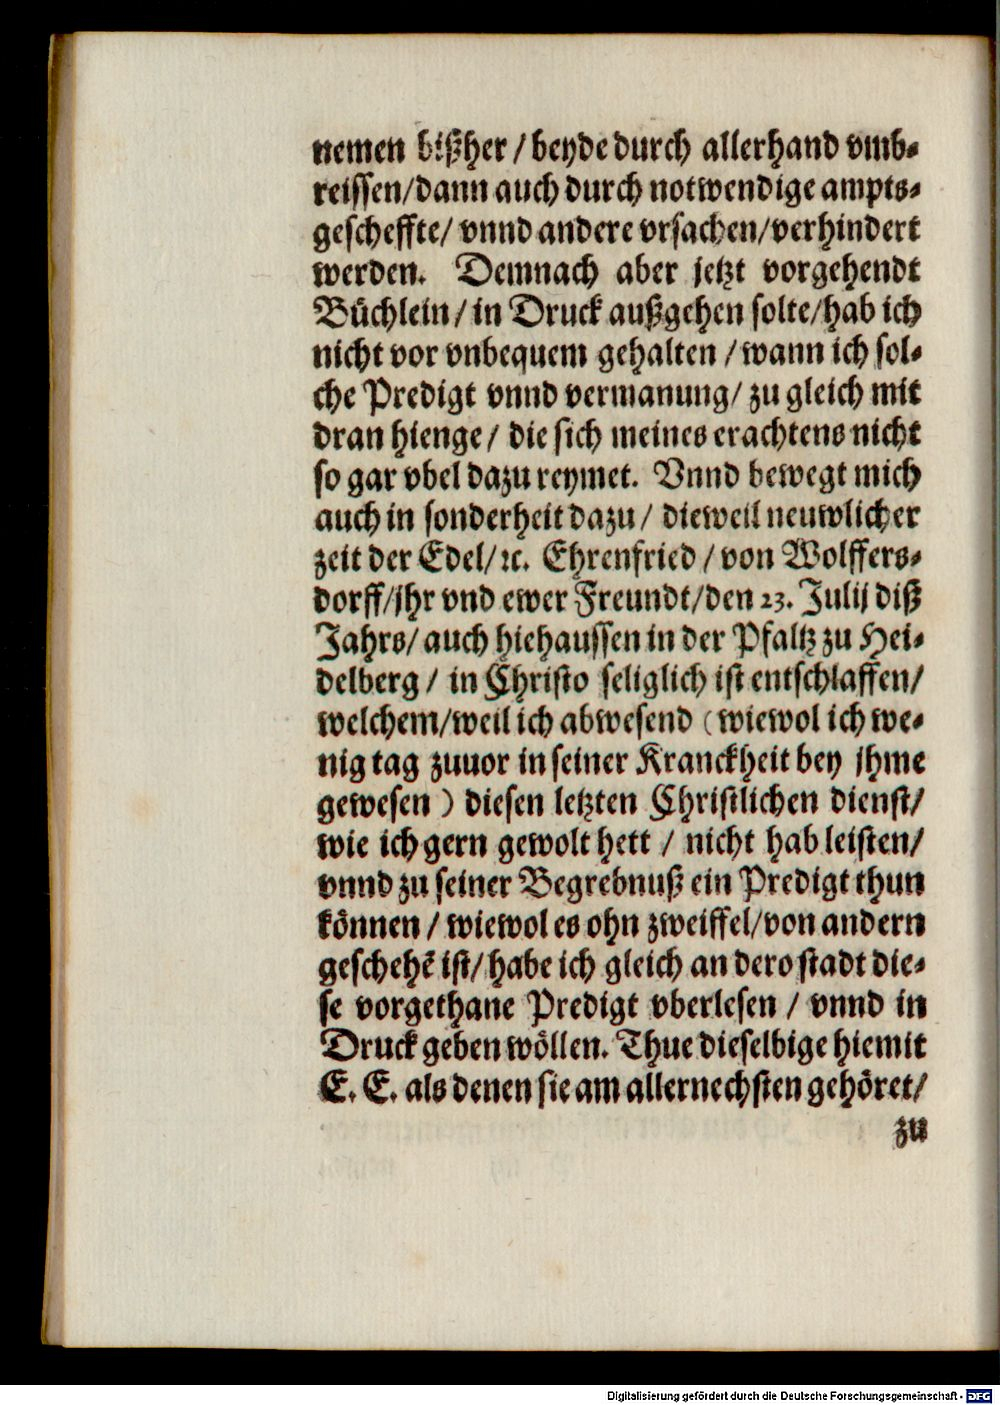 nemen bißher / beyde durch allerhand vmb-
reissen/dann auch durch notwendige ampts-
gescheffte/ vnnd andere vrsachen/verhindert
werden. Demnach aber jetzt vorgehendt
Büchlein / in Druck außgehen solte/hab ich
nicht vor vnbequem gehalten / wann ich sol-
che Predigt vnnd vermanung/ zu gleich mit
dran hienge/ die sich meines erachtens nicht
so gar vbel dazu reymet. Vnnd bewegt mich
auch in sonderheit dazu / dieweil neuwlicher
zeit der Edel/ꝛc. Ehrenfried / von Wolffers-
dorff/jhr vnd ewer Freundt/den 23. Julij diß
Jahrs/ auch hiehaussen in der Pfaltz zu Hei-
delberg / in Christo seliglich ist entschlaffen/
welchem/weil ich abwesend (wiewol ich we-
nig tag zuuor in seiner Kranckheit bey jhme
gewesen) diesen letzten Christlichen dienst/
wie ich gern gewolt hett / nicht hab leisten/
vnnd zu seiner Begrebnuß ein Predigt thun
können / wiewol es ohn zweiffel/von andern
geschehẽ ist/habe ich gleich an dero stadt die-
se vorgethane Predigt vberlesen / vnnd in
Druck geben wöllen. Thue dieselbige hiemit
E. E. als denen sie am allernechsten gehöret/
zu
Digitalisierung gefördert durch die Deutsche Forschungsgemeinschaft - DFG